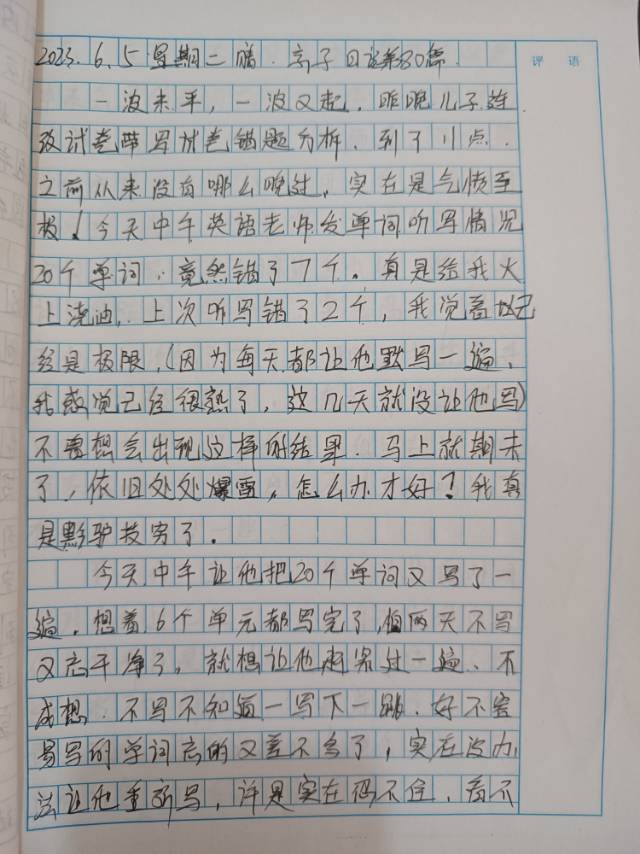 评 语
2023.6.5 星期二 晴. 亲子日记第80篇.
一波未平，一波又起，昨晚儿子连
改试卷带写试卷错题分析，到了11点.
之前从来没有哪么晚过，实在是气愤至
极！今天中午英语老师发单词听写情况
20个单词，竟然错了7个。真是给我火
上浇油，上次听写错了2个，我觉着也已
经是极限，(因为每天都让他默写一遍，
我感觉已经很熟了，这几天就没让他写)
不曾想会出现这样的结果. 马上就期末
了，依旧处处爆雷，怎么办才好？我真
是黔驴技穷了。
今天中午让他把20个单词又写了一
遍，想着6个单元都写完了,怕两天不写
又忘干净了，就想让他再来过一遍、不
成想. 不写不知道一写下一跳. 好不容
易写的单词忘的又差不多了，实在没办
法让他重新写，许是实在码不住，看不